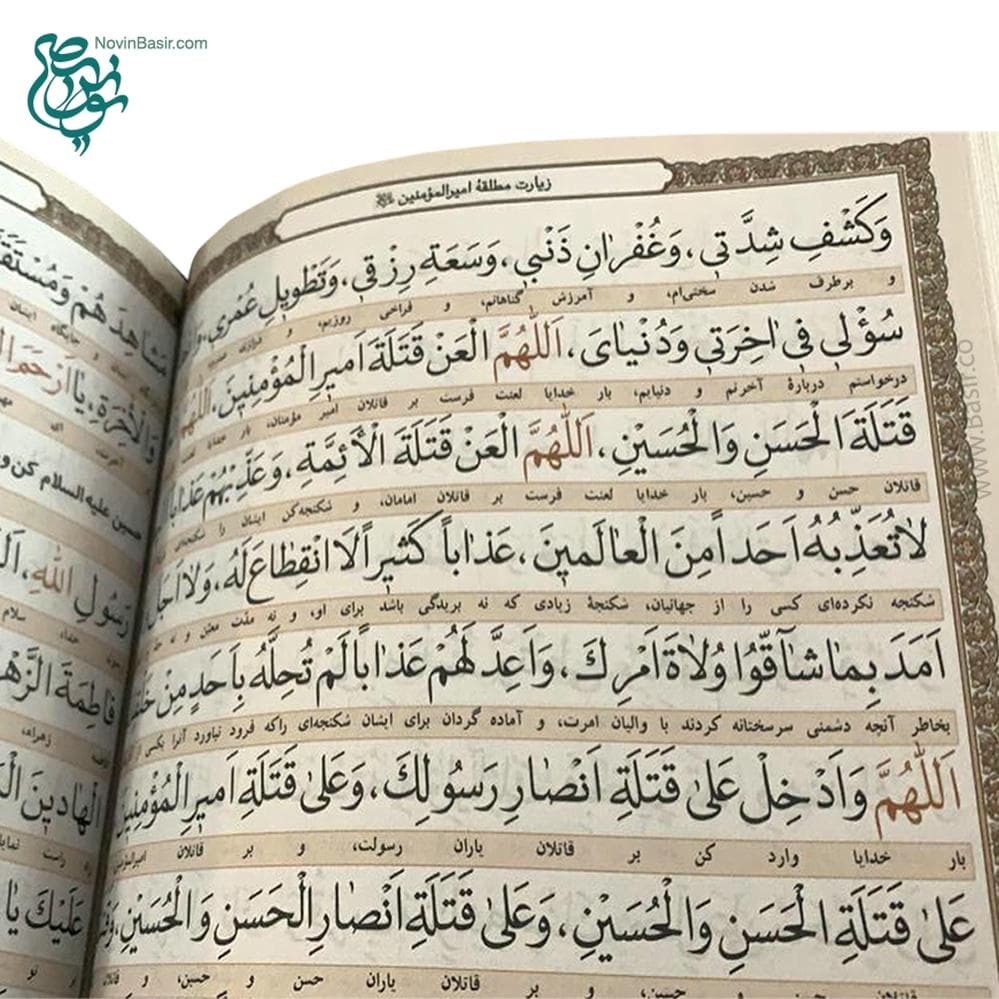 NovinBasir.com
زیارت مطلقهٔ امیرالمؤمنین
وَكَشْفِ شِدَّتي، وَغُفْرانِ ذَنْبي، وَسَعَةِ رِزْقي، وَتَطْويلِ عُمْري،
و برطرف شدن سختی‌ام، و آمرزش گناهانم، و فراخی روزیم، و
سُؤْلي في اخِرَتي وَدُنْيايَ، اَللّٰهُمَّ الْعَنْ قَتَلَةَ اَميرِ الْمُؤْمِنينَ، اَللّٰهُمَّ
درخواستم دربارهٔ آخرتم و دنیایم، بار خدایا لعنت فرست بر قاتلان امیر مؤمنان، بار خدایا
قَتَلَةَ الْحَسَنِ وَالْحُسَيْنِ، اَللّٰهُمَّ الْعَنْ قَتَلَةَ الْأَئِمَّةِ، وَعَذِّبْهُمْ عَذاباً
قاتلان حسن و حسین، بار خدایا لعنت فرست بر قاتلان امامان، و شکنجه‌کن ایشان را شکنجه‌ای
لاتُعَذِّبُهُ اَحَداً مِنَ الْعالَمينَ، عَذاباً كَثيراً لَا انْقِطاعَ لَهُ، وَلا اَجَلَ
شکنجه نکرده‌ای کسی را از جهانیان، شکنجهٔ زیادی که نه بریدگی باشد برای او، و نه مدّت معیّن و نه
اَمَدَ بِما شاقّوُا وُلاةَ اَمْرِكَ، وَاَعِدَّ لَهُمْ عَذاباً لَمْ تُحِلَّهُ بِاَحَدٍ مِنْ
بخاطر آنچه دشمنی سرسختانه کردند با والیان امرت، و آماده گردان برای ایشان شکنجه‌ای راکه فرود نیاورد آنرا بکسی از
اَللّٰهُمَّ وَاَدْخِلْ عَلىٰ قَتَلَةِ اَنْصارِ رَسُولِكَ، وَعَلىٰ قَتَلَةِ اَميرِ الْمُؤْمِنينَ
بار خدایا وارد کن بر قاتلان یاران رسولت، و بر قاتلان امیرالمؤمنین
عَلىٰ قَتَلَةِ الْحَسَنِ وَالْحُسَيْنِ، وَعَلىٰ قَتَلَةِ اَنْصارِ الْحَسَنِ وَالْحُسَيْنِ،
قاتلان حسن و حسین، و بر قاتلان یاران حسن و حسین، و
مَشاهِدَهُمْ
و جایگاه ایشان
وَالْأٰخِرَةِ، يا اَرْحَمَ
حسین علیه السلام کن و
رَسُولِ اللهِ،
فاطِمَةَ الزَّهْ
زهراء،
الْهادينَ
عَلَيْكَ يا
www.Basir.co